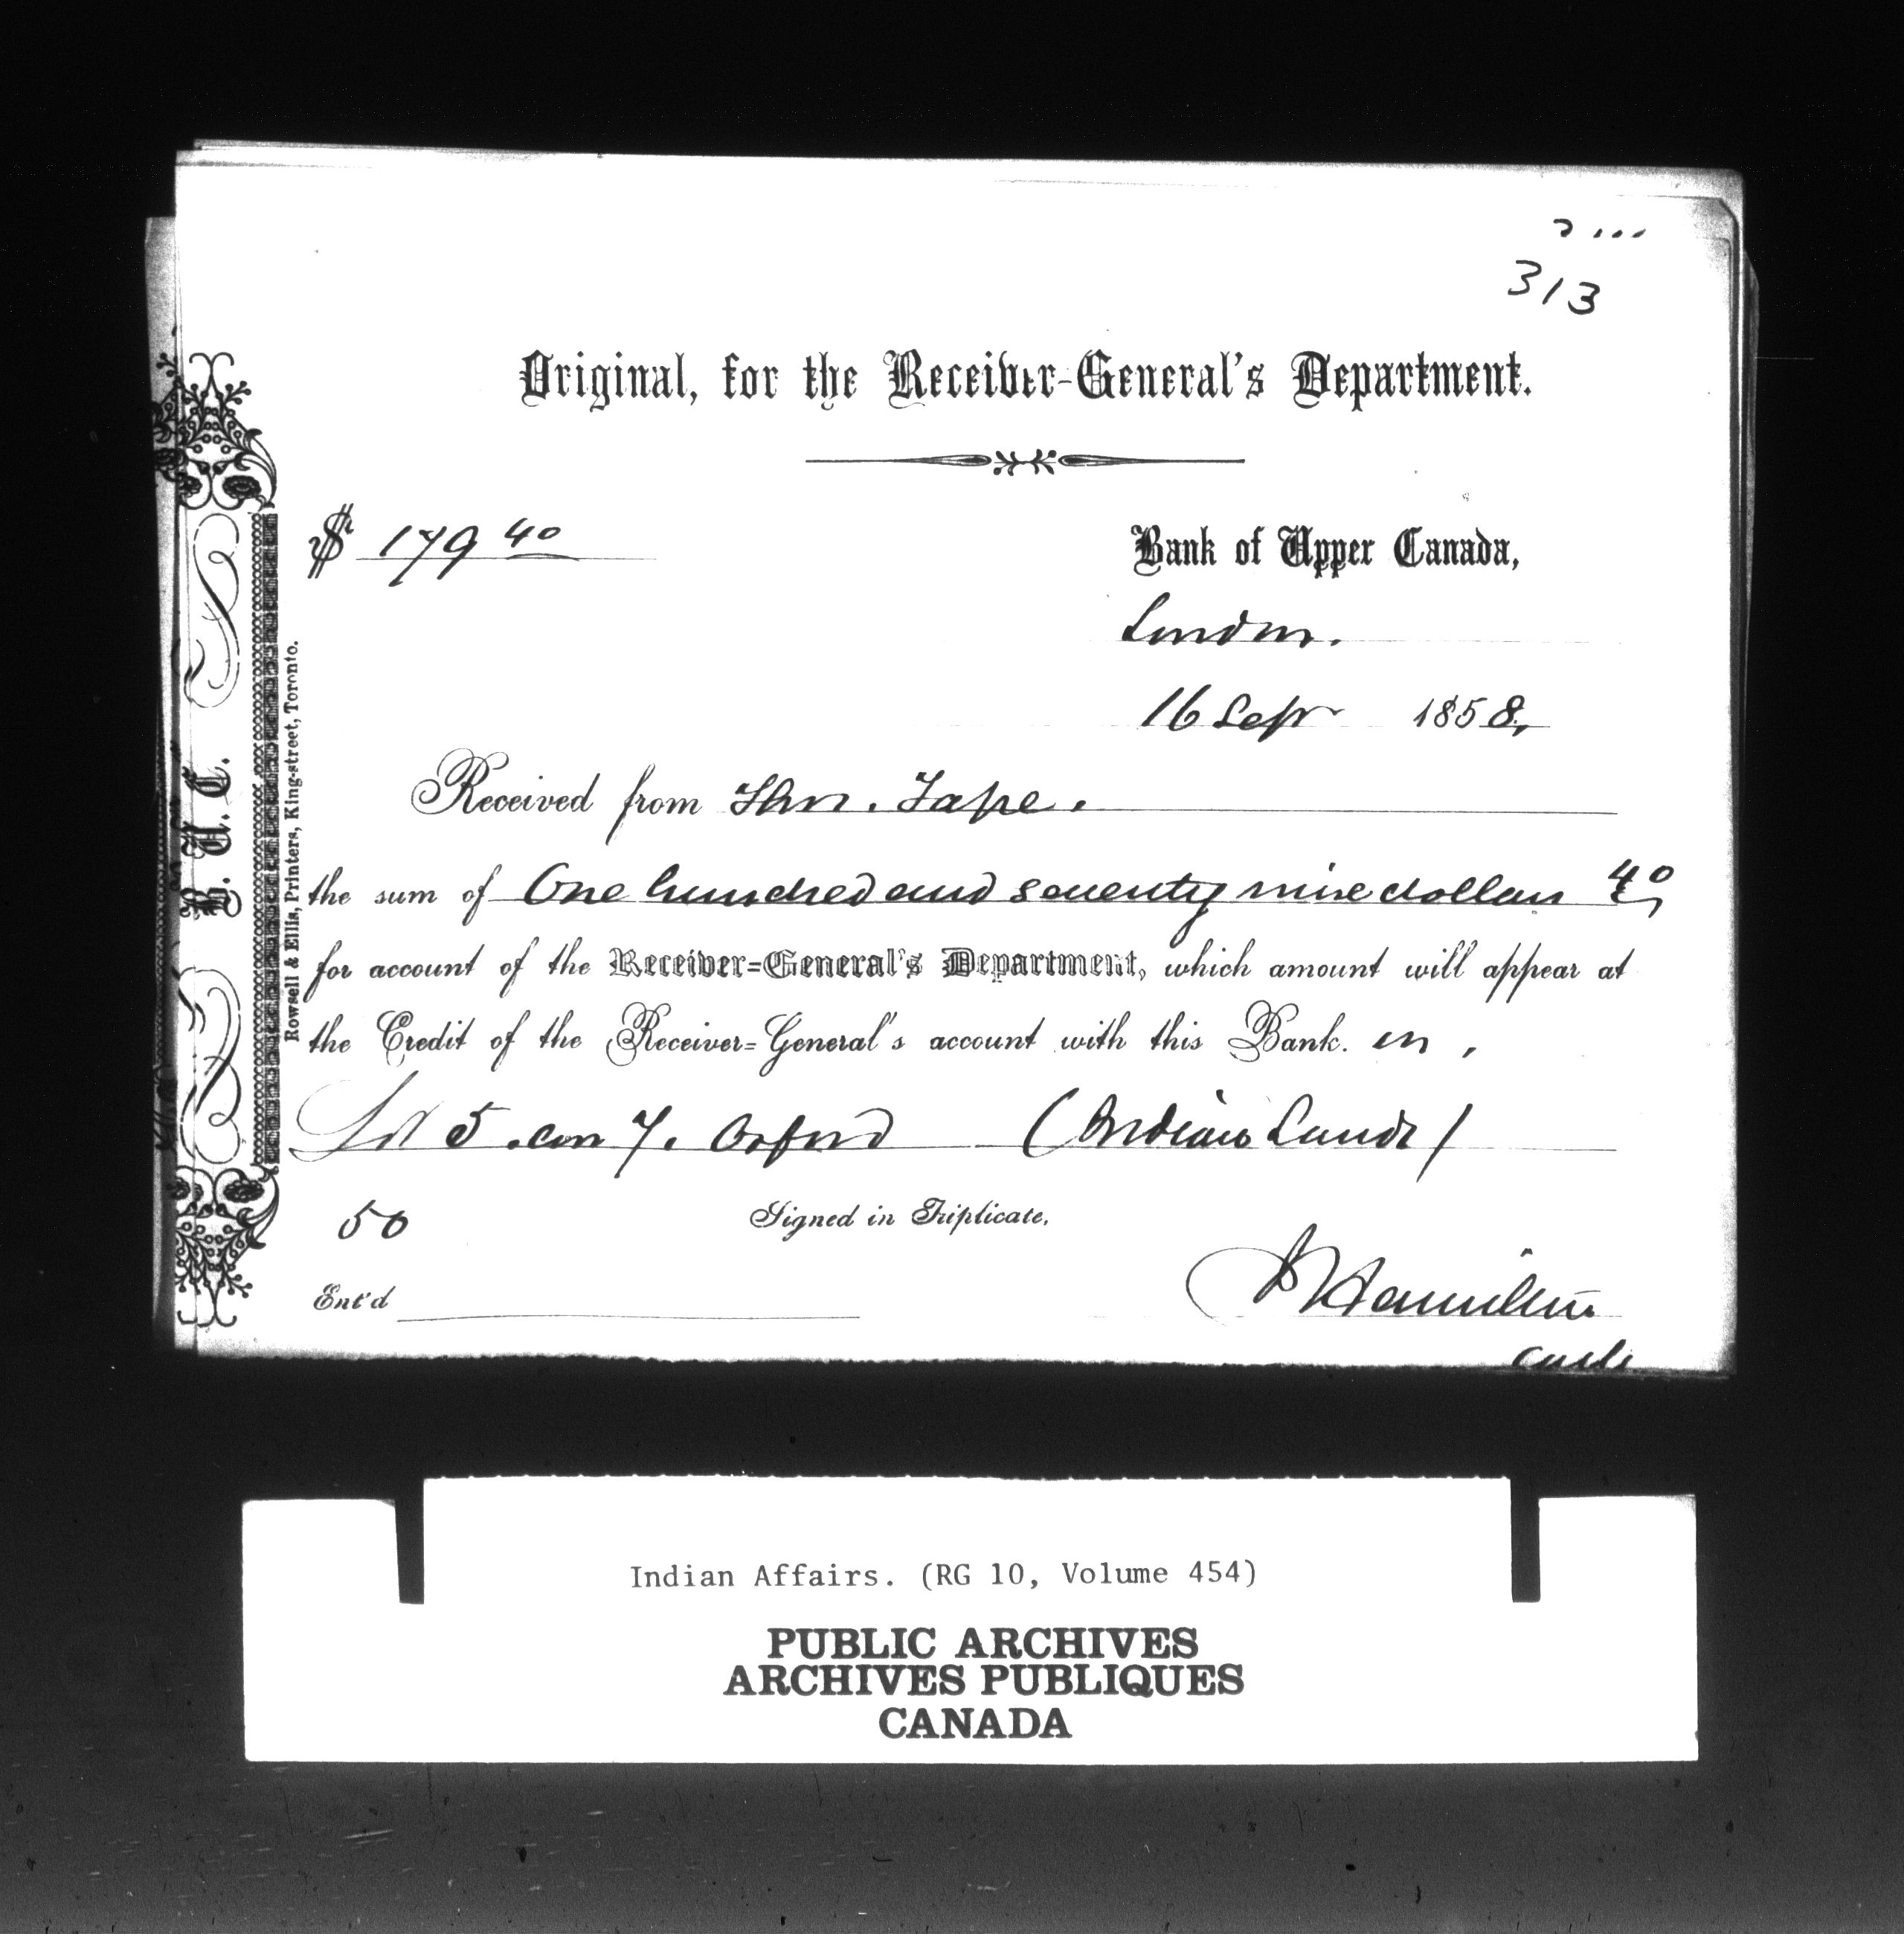 313
Original, for the Receiver-General's Department.
$ 179 40
Bank of Upper Canada,
London.
16 Sepr 1858,
Received from Thos. Tape.
the sum of One hundred and seventy nine dollars 40
for account of the Receiver=General's Department, which amount will appear at
the Credit of the Receiver=General's account with this Bank. on,
Lot 5. con 7. Orford (Indian Lands)
50
Signed in Triplicate.
Hamilton
Ent'd
B. U. C.
Rowsell & Ellis, Printers, King-street, Toronto.
Indian Affairs. (RG 10, Volume 454)
PUBLIC ARCHIVES
ARCHIVES PUBLIQUES
CANADA